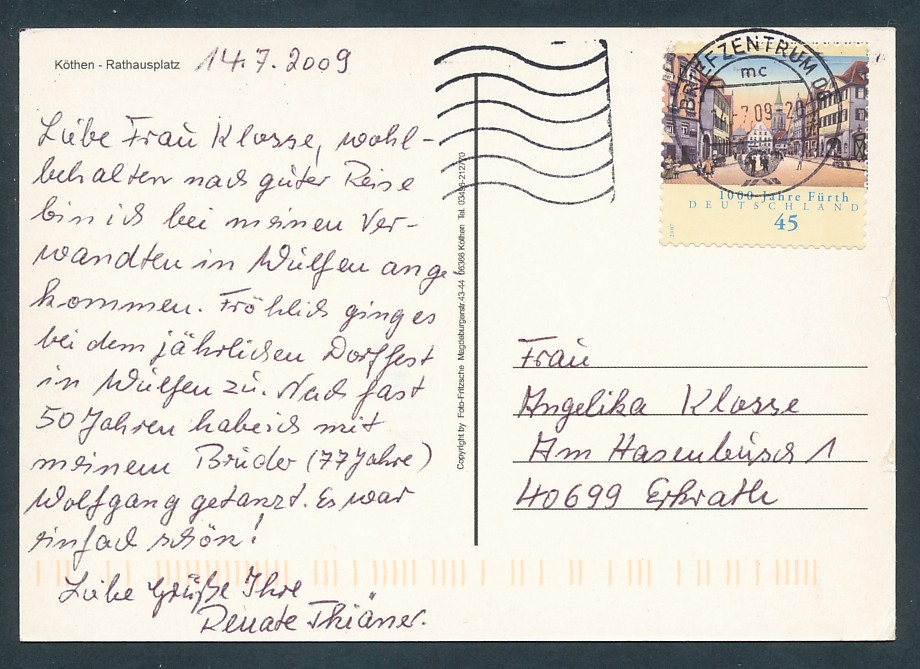 Köthen - Rathausplatz
14.7.2009
Liebe Frau Klosse, wohl-
behalten nach guter Reise
bin ich bei meinen Ver-
wandten in Wülfen ange-
kommen. Fröhlich ging es
bei dem jährlichen Dorffest
in Wülfen zu. Nach fast
50 Jahren habe ich mit
meinem Bruder (77 Jahre)
Wolfgang getanzt. Es war
einfach schön!
Liebe Grüße Ihre
Renate
Copyright by Foto-Fritzsche Magdeburgerstr 43-44 06366 Köthen Tel. 03496-212770
BRIEFZENTRUM
mc
7.09-20
1000 Jahre Fürth
DEUTSCHLAND
45
2007
Frau
Angelika Klosse
Am Hasenbusch 1
40699 Erkrath